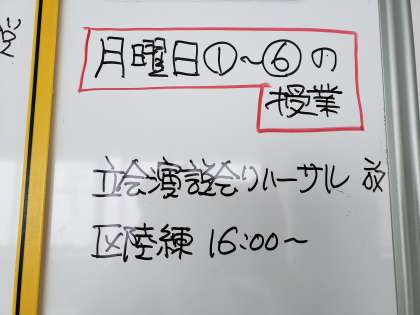 月曜日①～⑥の
授業
立会演説会リハーサル 放
区陸練 16:00～